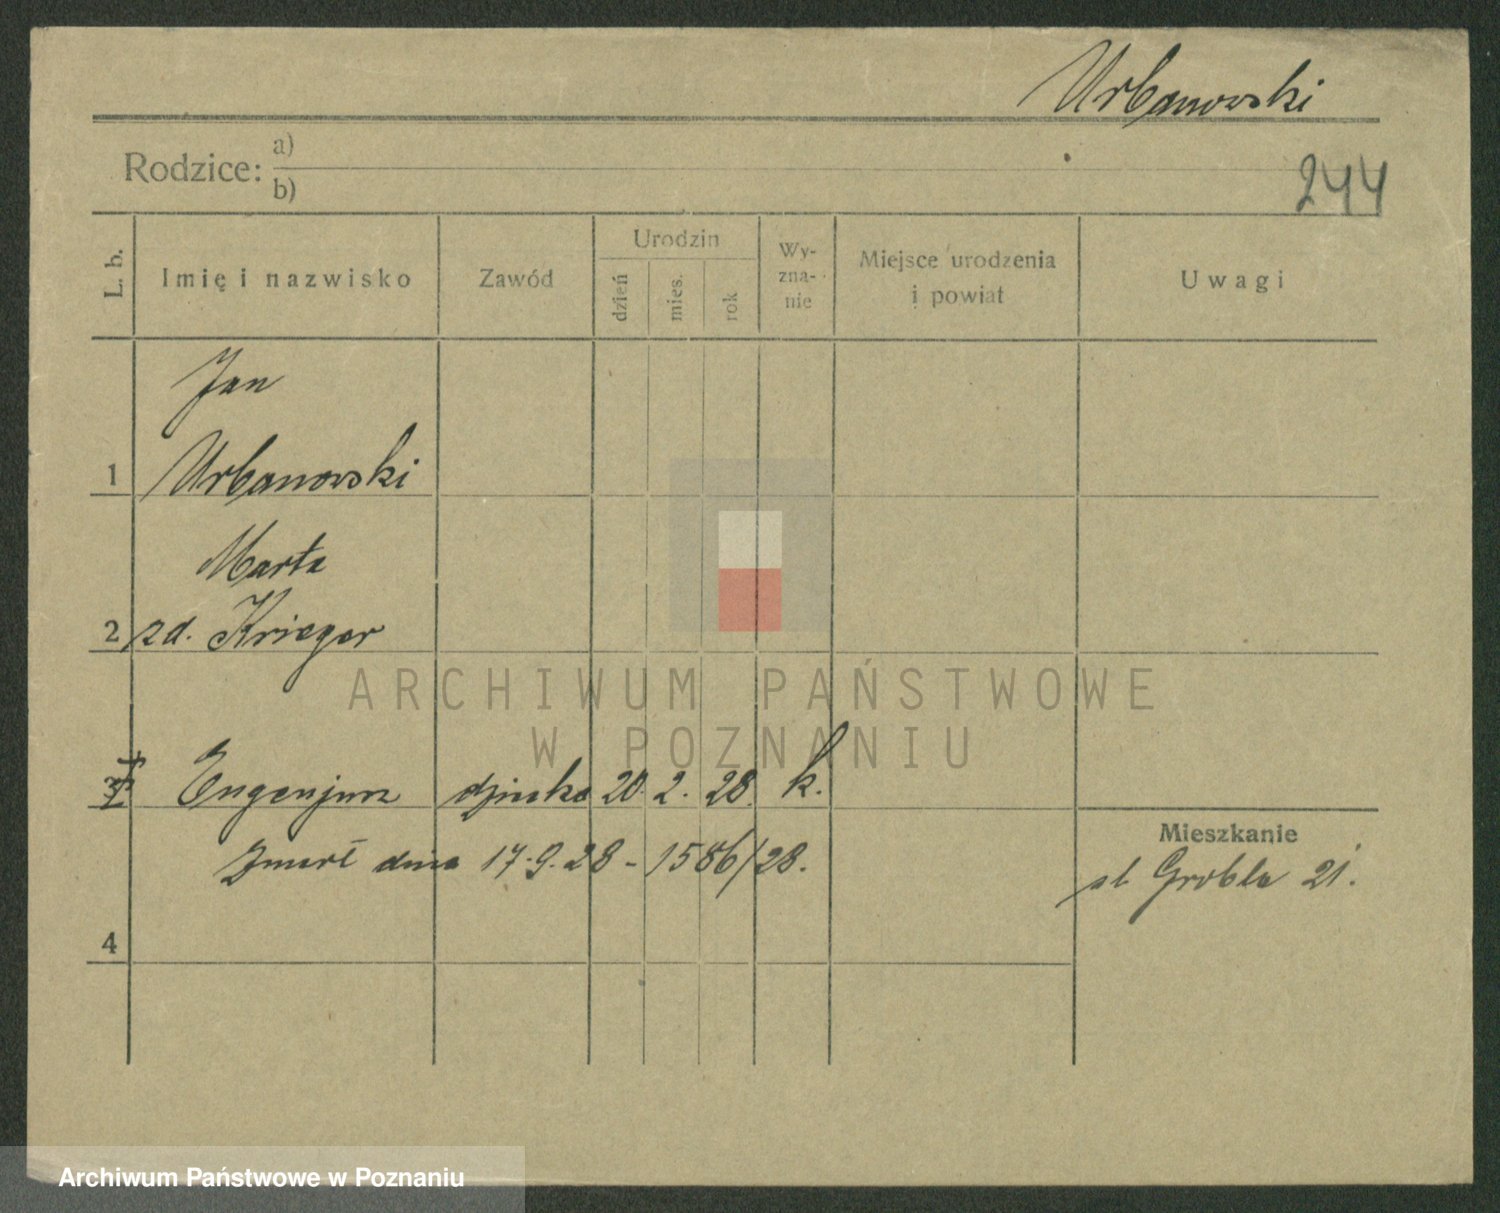 Urbanowski
Rodzice: a)
b)
244
L. b.
Imię i nazwisko
Zawód
Urodzin
dzień
mies.
rok
Wy-
zna-
nie
Miejsce urodzenia
i powiat
Uwagi
Jan
1 Urbanowski
Marta
2 zd. Krieger
3 Eugenjusz dziecko 20. 2. 28. k.
Zmarł dnia 17.9.28 - 1586/28.
Mieszkanie
ul Grobla 21.
4
ARCHIWUM PAŃSTWOWE
W POZNANIU
Archiwum Państwowe w Poznaniu